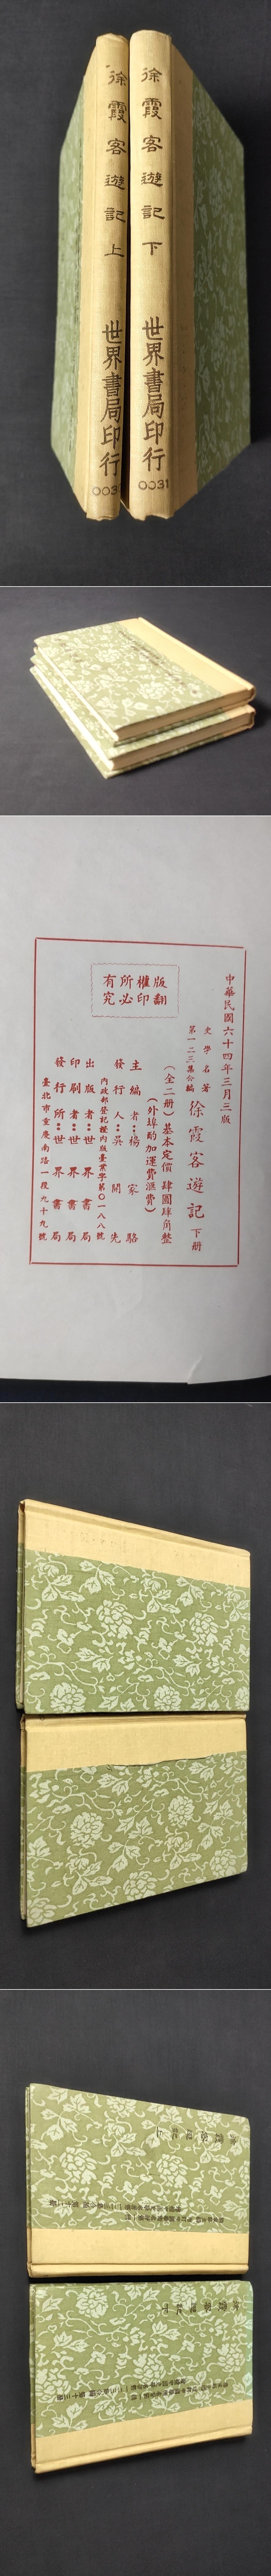 徐霞客遊記 上
世界書局印行
003
徐霞客遊記 下
世界書局印行
0031
中華民國六十四年三月三版
文學名著
第一二三集合編
徐霞客遊記 下冊
(全二冊)基本定價肆圓肆角整
(外埠酌加運費滙費)
主編者:楊家駱
發行人:吳開先
內政部登記證內版臺業字第〇一八八號
出版者:世界書局
印刷者:世界書局
發行所:世界書局
臺北市重慶南路一段九十九號
版權所有
翻印必究